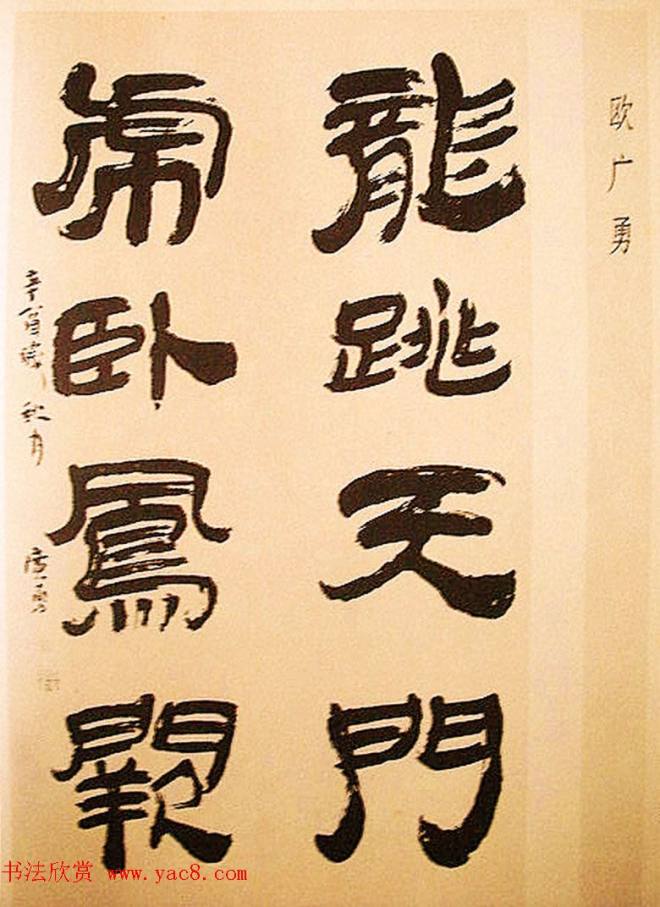 欧广勇
龍跳天門
虎卧鳳闕
辛酉歲秋月
廣勇
书法欣赏 www.yac8.com